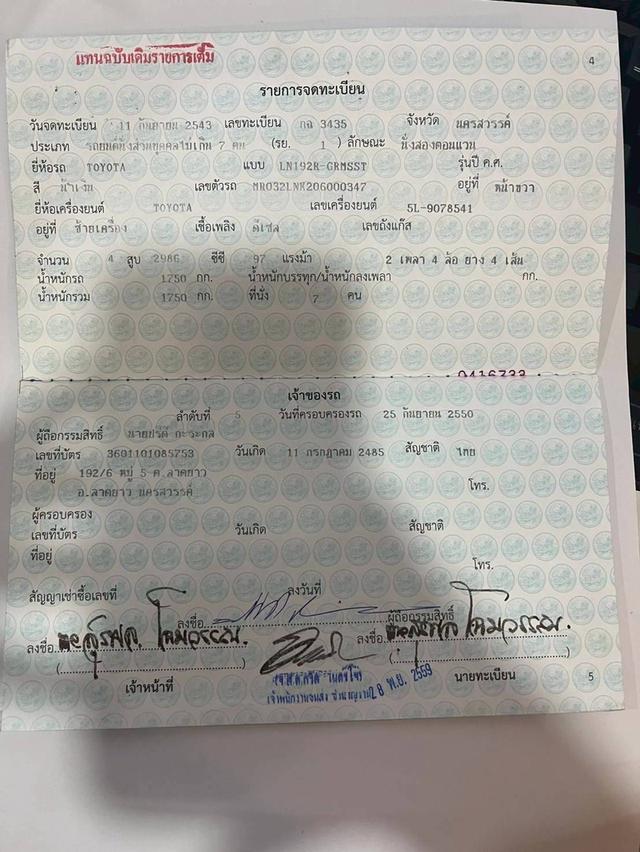 แทนฉบับเดิมรายการเดิม
4
รายการจดทะเบียน
วันจดทะเบียน 11 กันยายน 2543 เลขทะเบียน กฉ 3435 จังหวัด นครสวรรค์
ประเภท รถยนต์นั่งส่วนบุคคลไม่เกิน 7 คน (รย. 1 ) ลักษณะ นั่งสองตอนแวน
ยี่ห้อรถ TOYOTA แบบ LN192R-GRMSST รุ่นปี ค.ศ.
สี น้ำเงิน เลขตัวรถ MR032LNK206000347 อยู่ที่ หน้าขวา
ยี่ห้อเครื่องยนต์ TOYOTA เลขเครื่องยนต์ 5L-9078541
อยู่ที่ ซ้ายเครื่อง เชื้อเพลิง ดีเซล เลขถังแก๊ส
จำนวน 4 สูบ 2986 ซีซี 97 แรงม้า 2 เพลา 4 ล้อ ยาง 4 เส้น
น้ำหนักรถ 1750 กก. น้ำหนักบรรทุก/น้ำหนักลงเพลา กก.
น้ำหนักรวม 1750 กก. ที่นั่ง 7 คน
0416733
เจ้าของรถ
ลำดับที่ 5 วันที่ครอบครองรถ 25 กันยายน 2550
ผู้ถือกรรมสิทธิ์ นายปรีดี กะระกล
เลขที่บัตร 3601101085753 วันเกิด 11 กรกฎาคม 2485 สัญชาติ ไทย
ที่อยู่ 192/6 หมู่ 5 ต.ลาดยาว โทร.
อ.ลาดยาว นครสวรรค์
ผู้ครอบครอง
เลขที่บัตร วันเกิด สัญชาติ
ที่อยู่ โทร.
สัญญาเช่าซื้อเลขที่ ลงวันที่
ลงชื่อ ผู้ถือกรรมสิทธิ์
ลงชื่อ ลงชื่อ
(                ) (                )
เจ้าหน้าที่ นายทะเบียน 5
เจ้าพนักงานขนส่ง ชำนาญงาน 28 พ.ย. 2559